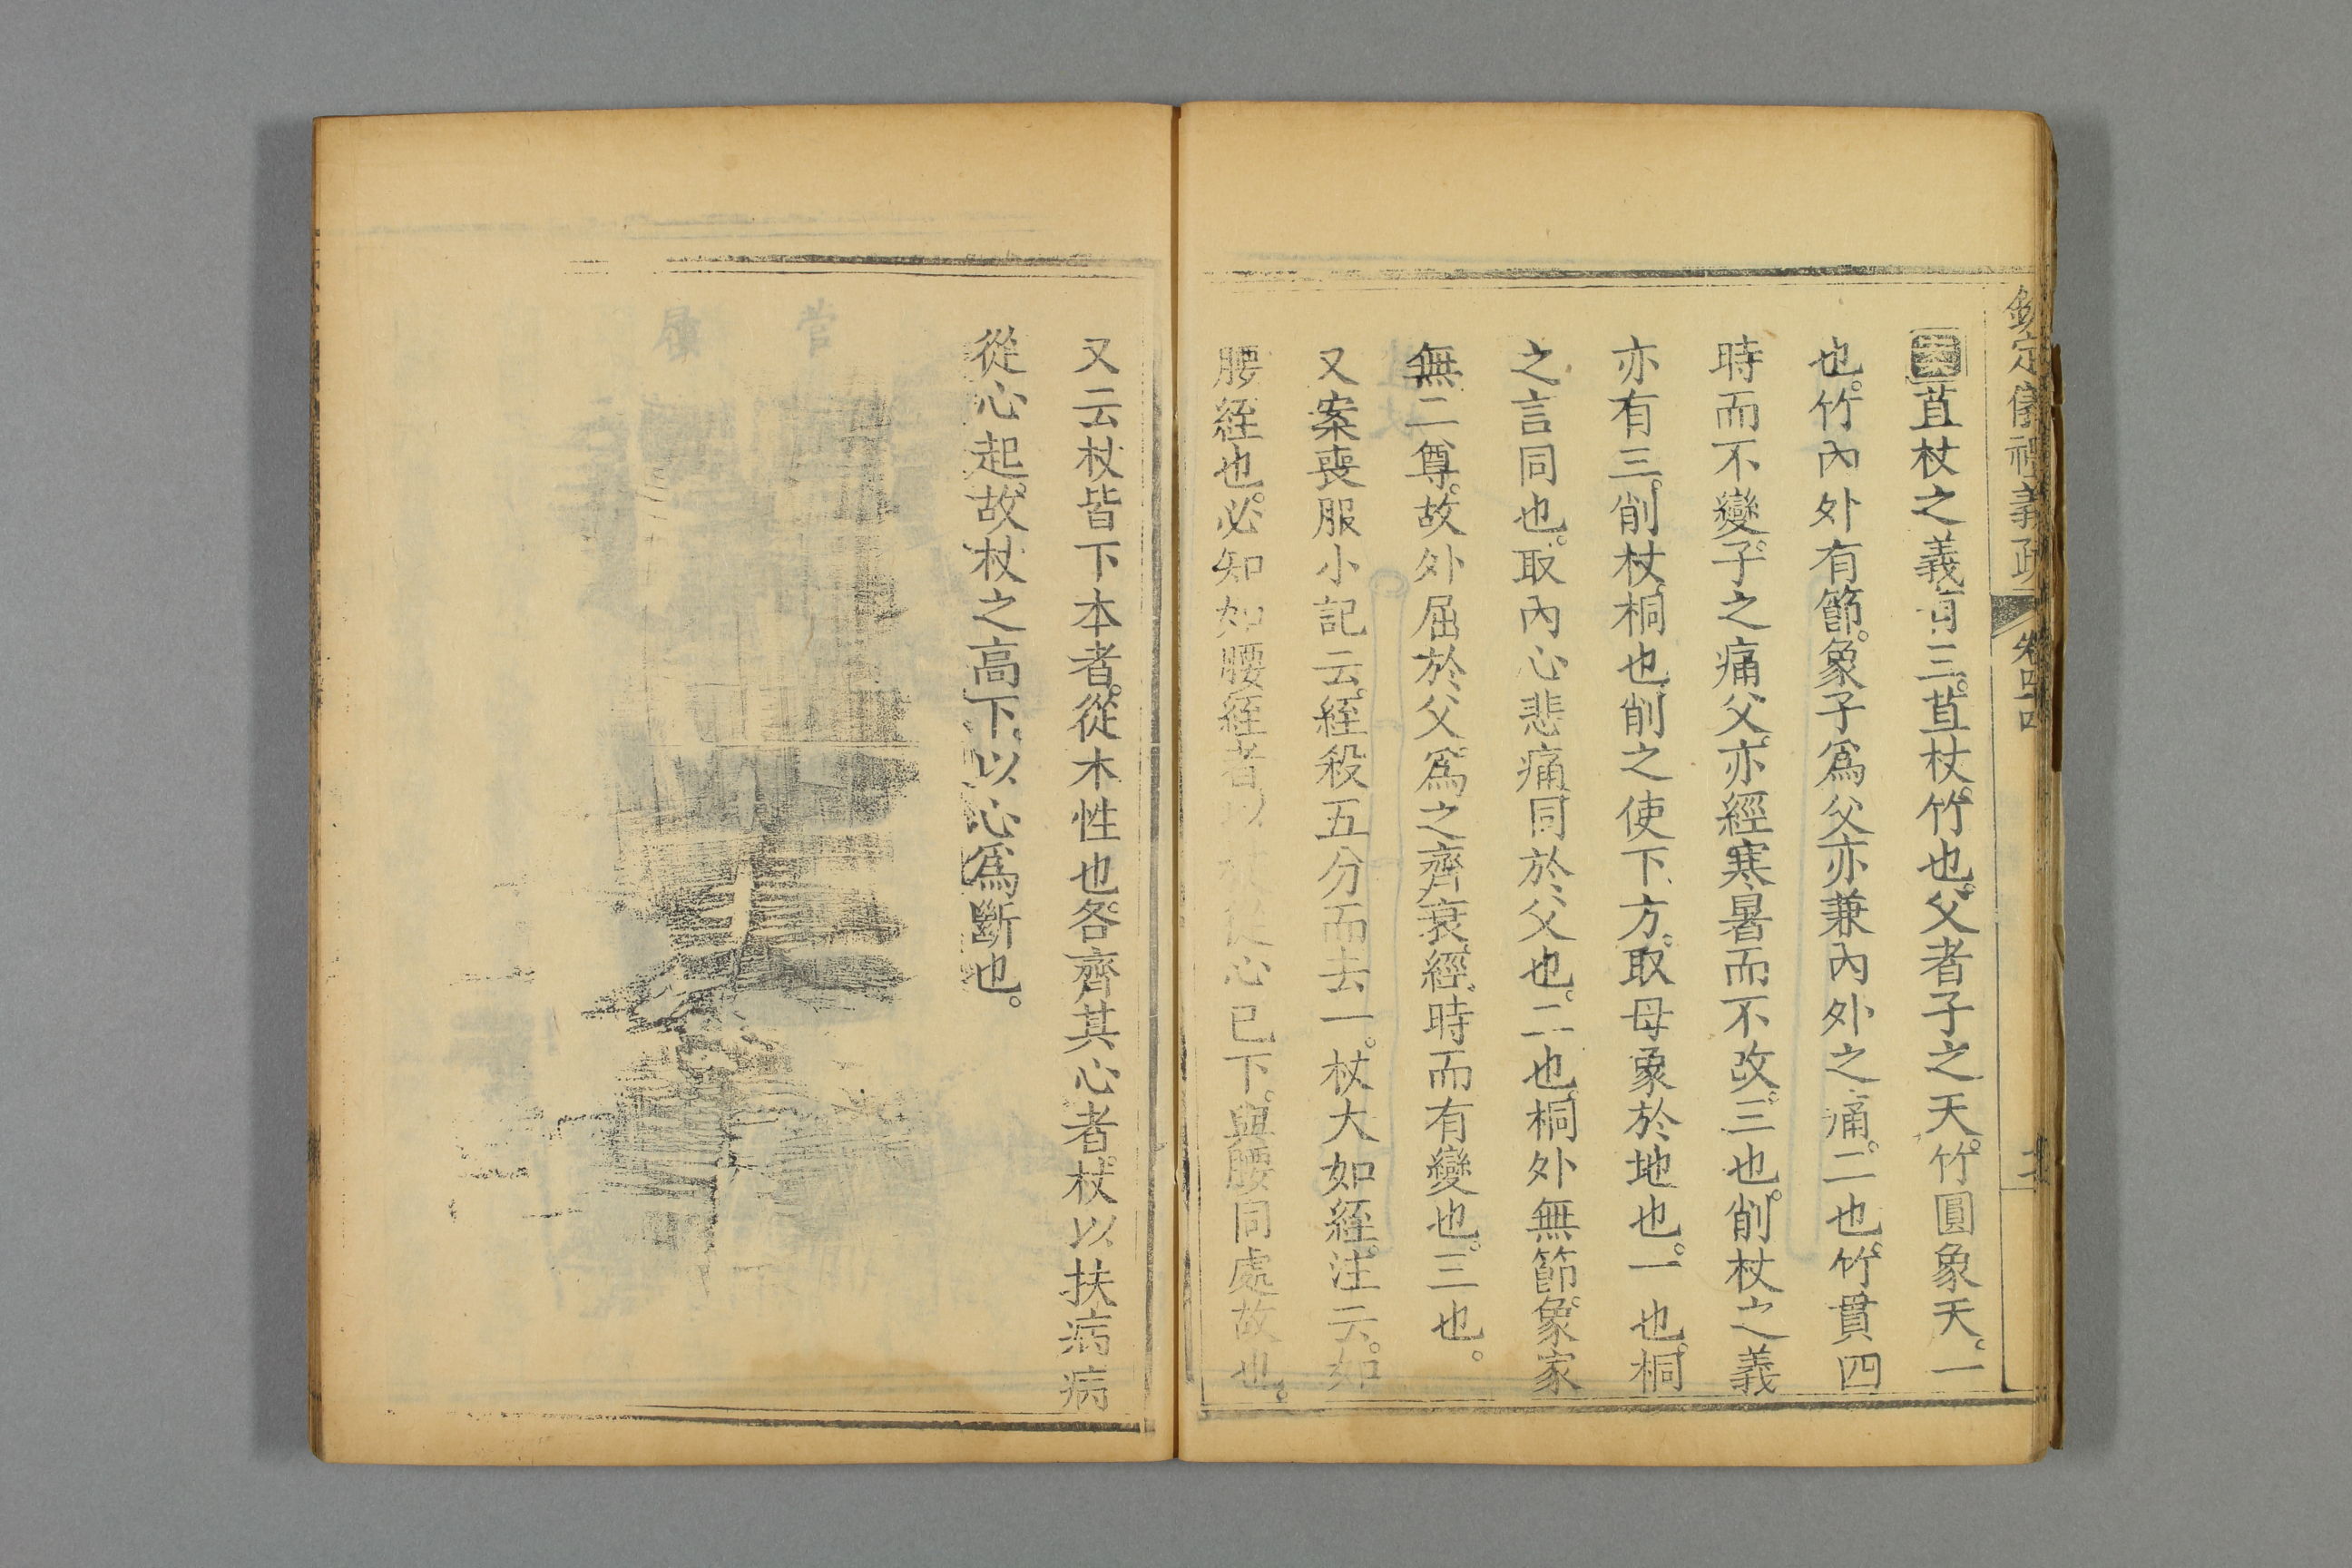 欽定儀禮義疏 卷四
苴杖之義有三。苴杖。竹也。父者子之天。竹圓象天。一
也。竹內外有節。象子爲父亦兼內外之痛。二也。竹貫四
時而不變。子之痛父。亦經寒暑而不改。三也。削杖之義
亦有三。削杖。桐也。削之使下方。取母象於地也。一也。桐
之言同也。取內心悲痛同於父也。二也。桐外無節。象家
無二尊。故外屈於父。爲之齊衰。經時而有變也。三也。
又案喪服小記云。絰殺五分而去一。杖大如絰。注云。如
腰絰也。必知如腰絰者以杖從心已下。與腰同處故也。
又云杖皆下本者。從木性也。各齊其心者。杖以扶病。病
從心起。故杖之高下。以心爲斷也。